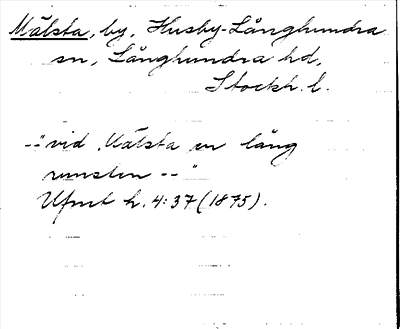 Mälsta, by, Husby-Långhundra
sn, Långhundra hd,
Stockh. l.
--"vid Mälsta en lång
runsten --"
Upmt h. 4:37 (1875).